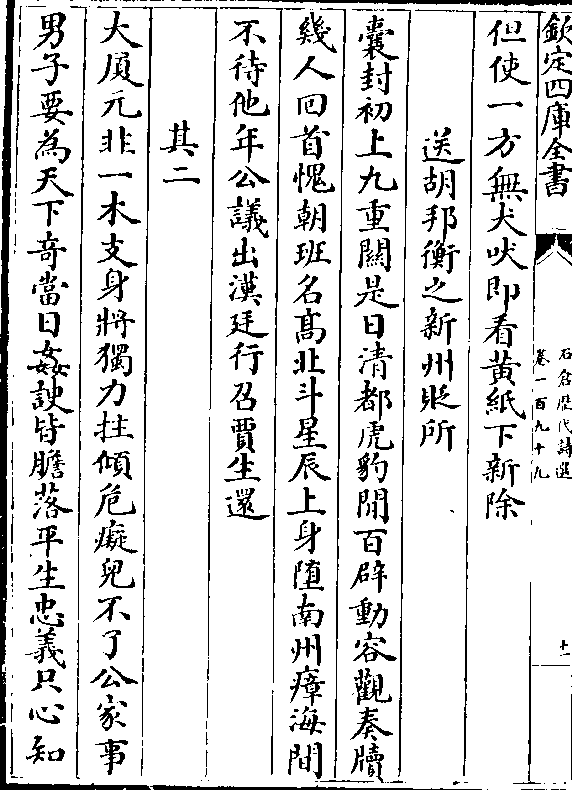 欽定四庫全書
石倉歷代詩選
卷一百九十九
十一
但使一方無犬吠即看黃紙下新除
送胡邦衡之新州貶所
囊封初上九重關是日清都虎豹閒百辟動容觀奏牘
幾人回首愧朝班名髙北斗星辰上身墮南州瘴海間
不待他年公議出漢廷行召賈生還
其二
大厦元非一木支身將獨力拄傾危癡兒不了公家事
男子要為天下竒當日姦諛皆膽落平生忠義只心知